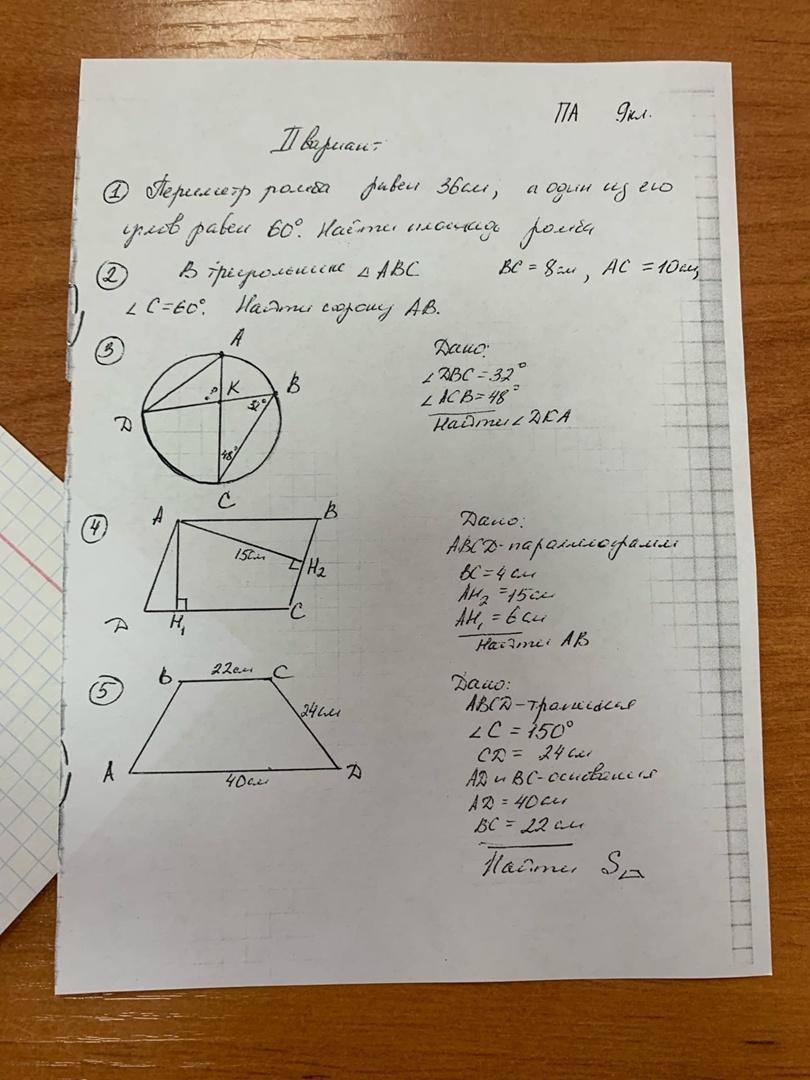 ПА 9кл.
II вариант
① Периметр ромба равен 36см, а один из его
углов равен 60°. Найти площадь ромба
② В треугольнике ∠ABC BC = 8см, AC = 10см,
∠C=60°. Найти сторону AB.
③
A
K
B
?
32°
D
48°
C
Дано:
∠DBC = 32°
∠ACB = 48°
Найти ∠DKA
④
A
B
15см
H₂
D
H₁
C
Дано:
ABCD - параллелограмм
BC = 4см
AH₂ = 15см
AH₁ = 6см
Найти AB
⑤
B
22см
C
24см
A
40см
D
Дано:
ABCD - трапеция
∠C = 150°
CD = 24см
AD и BC - основания
AD = 40см
BC = 22см
Найти S